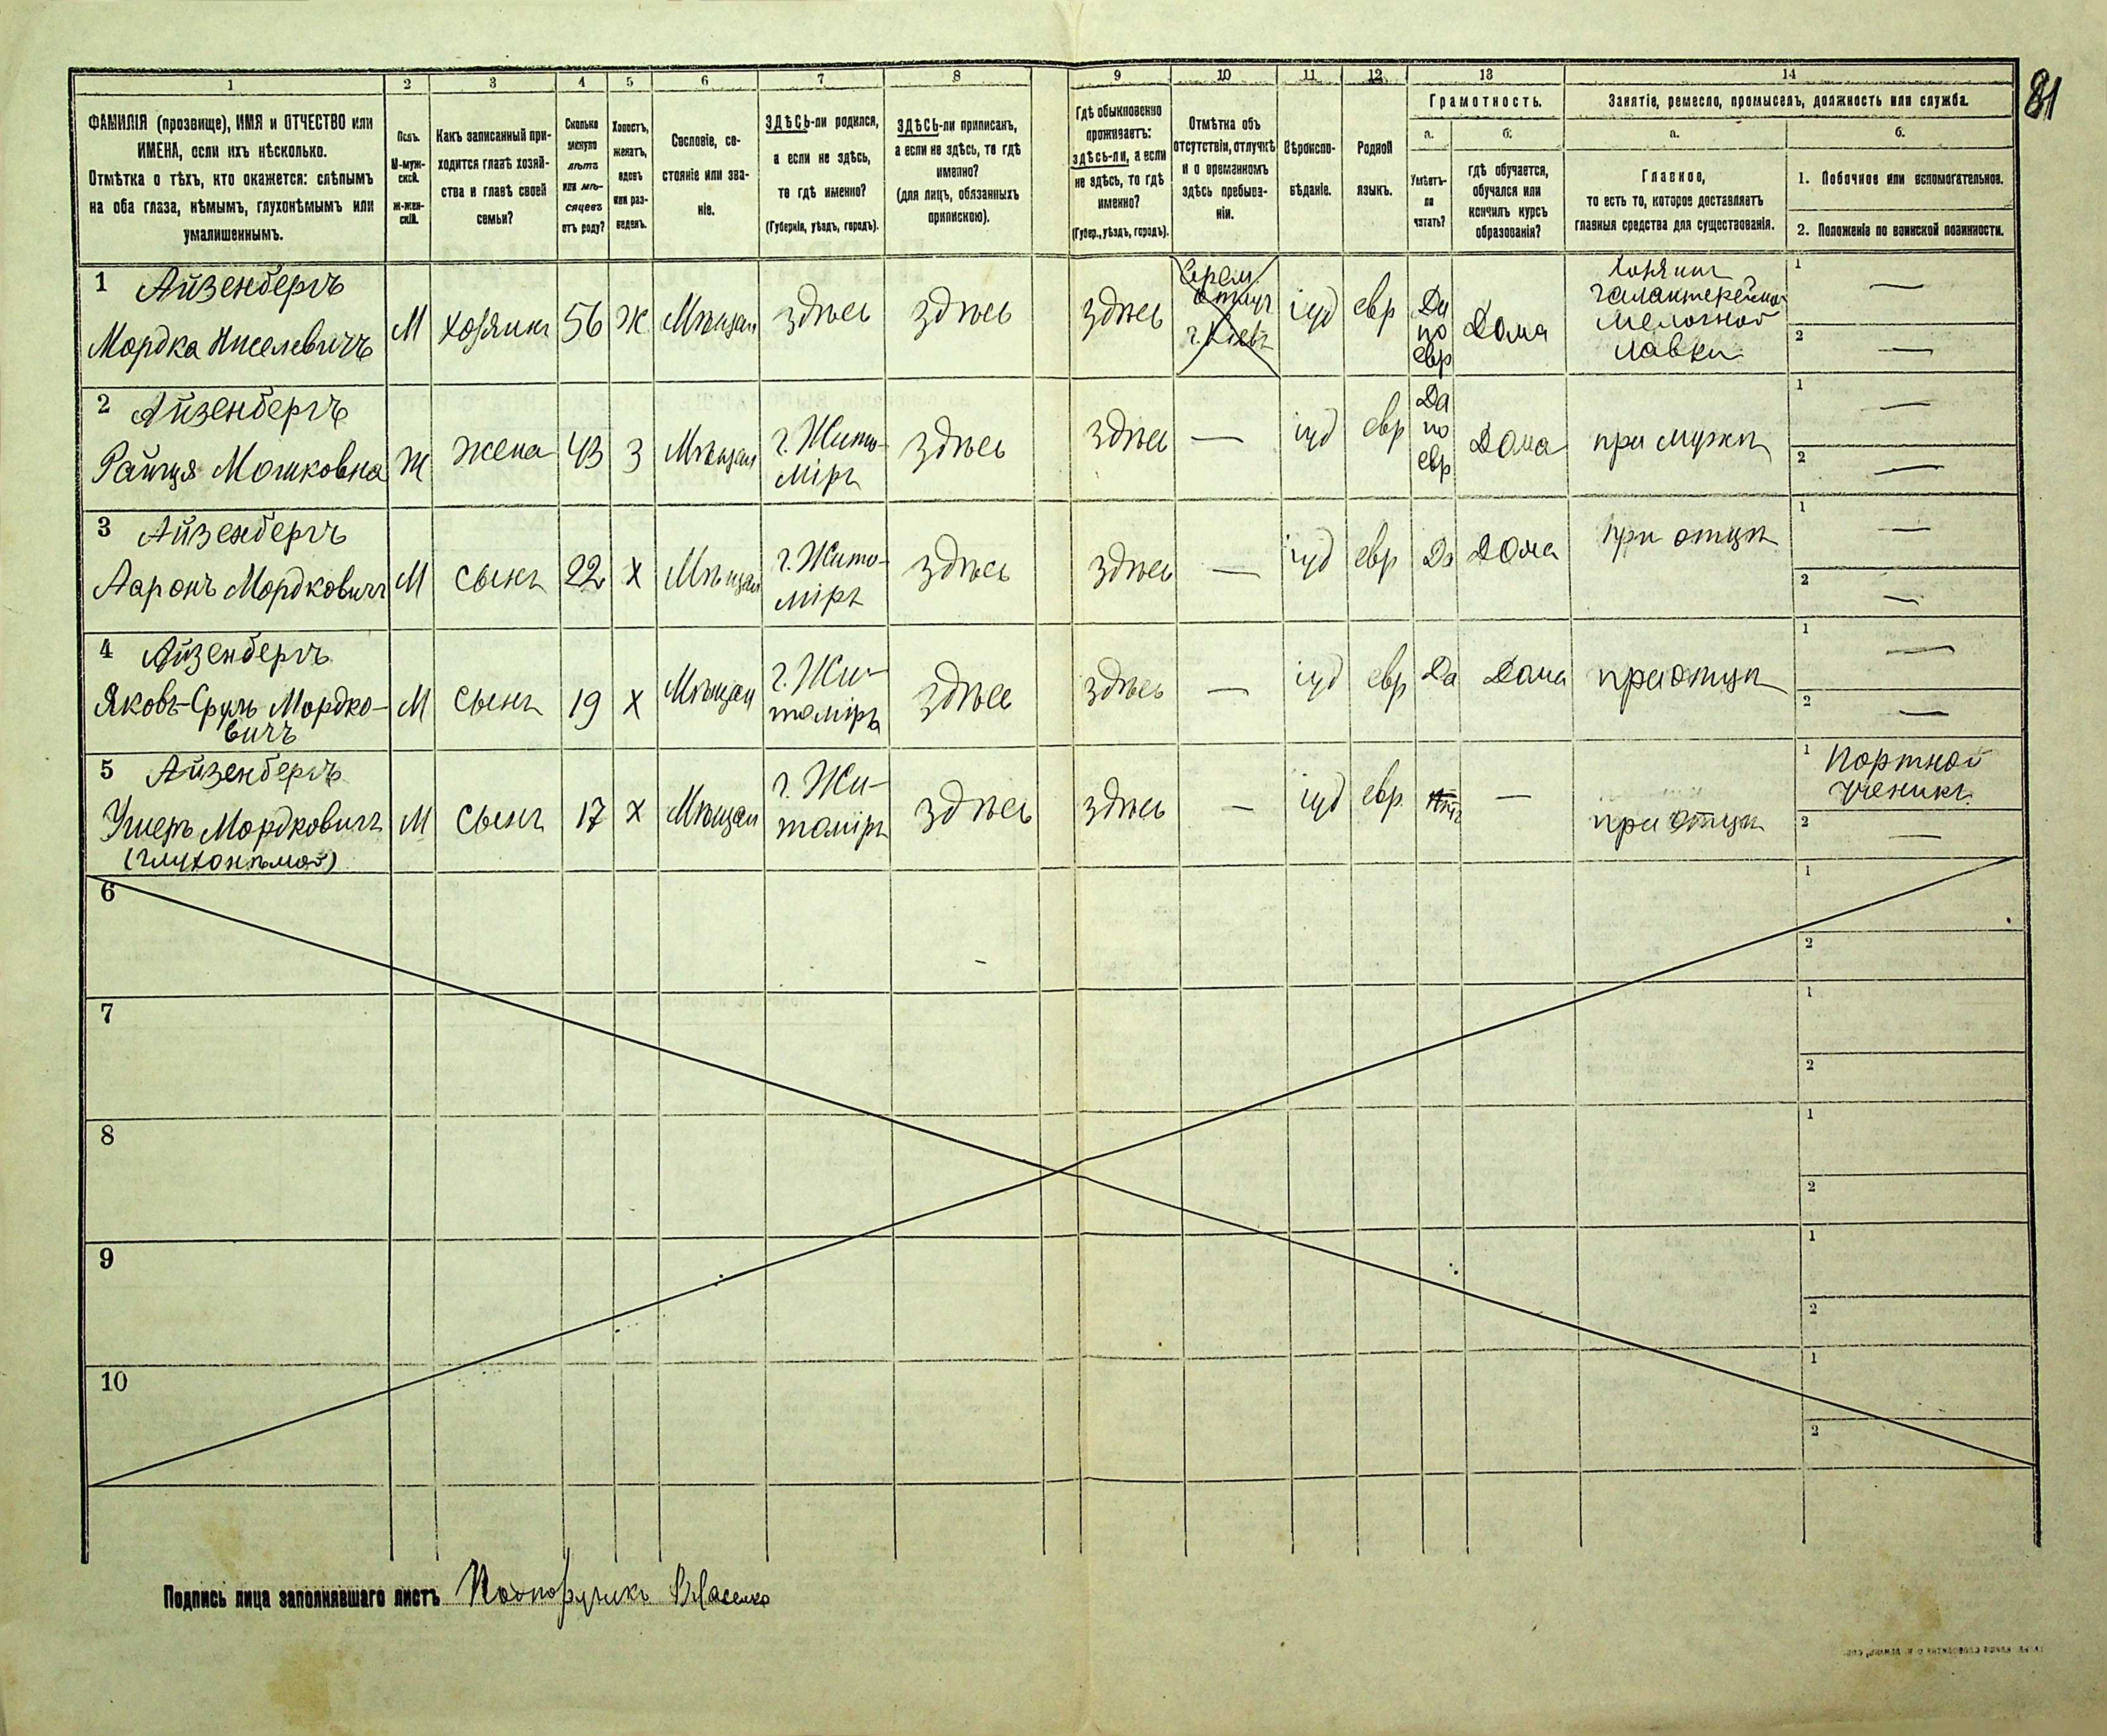 1 2 3 4 5 6 7 8 9 10 11 12 13 14
81
ФАМИЛІЯ (прозвище), ИМЯ и ОТЧЕСТВО или
ИМЕНА, если ихъ нѣсколько.
Отмѣтка о тѣхъ, кто окажется: слѣпымъ
на оба глаза, нѣмымъ, глухонѣмымъ или
умалишеннымъ.
Полъ.
М-муж-
ской.
Ж-жен-
скій.
Какъ записанный при-
ходится главѣ хозяй-
ства и главѣ своей
семьи?
Сколько
минуло
лѣтъ
или мѣ-
сяцевъ
отъ роду?
Холостъ,
женатъ,
вдовъ
или раз-
веденъ.
Сословіе, со-
стояніе или зва-
ніе.
ЗДѢСЬ-ли родился,
а если не здѣсь,
то гдѣ именно?
(Губернія, уѣздъ, городъ).
ЗДѢСЬ-ли приписанъ,
а если не здѣсь, то гдѣ
именно?
(для лицъ, обязанныхъ
припискою).
Гдѣ обыкновенно
проживаетъ:
здѣсь-ли, а если
не здѣсь, то гдѣ
именно?
(Губер., уѣздъ, городъ).
Отмѣтка объ
отсутствіи, отлучкѣ
и о временномъ
здѣсь пребыва-
ніи.
Вѣроиспо-
вѣданіе.
Родной
языкъ.
Грамотность.
а.
Умѣетъ-
ли
читать?
б.
гдѣ обучается,
обучался или
кончилъ курсъ
образованія?
Занятіе, ремесло, промыселъ, должность или служба.
а.
Главное,
то есть то, которое доставляетъ
главныя средства для существованія.
б.
1. Побочное или вспомогательное.
2. Положеніе по воинской повинности.
1 Айзенбергъ
Мордка Киселевичъ
М хозяинъ 56 Ж Мѣщан здѣсь здѣсь здѣсь
г. Кіевъ
іуд евр
Да
по
евр
Дома
Хозяинъ
галантерейной
мелочной
лавки
1 —
2 —
2 Айзенбергъ
Мошковна
Ж Жена 43 З Мѣщан
г. Жито-
міръ
здѣсь здѣсь — іуд евр
Да
по
евр
Дома при мужѣ
1 —
2 —
3 Айзенбергъ
Ааронъ Мордковичъ
М сынъ 22 Х Мѣщан
г. Жито-
міръ
здѣсь здѣсь — іуд евр Да Дома при отцѣ
1 —
2 —
4 Айзенбергъ
Яковъ-Сруль Мордко-
вичъ
М сынъ 19 Х Мѣщан
г. Жи-
томіръ
здѣсь здѣсь — іуд евр Да Дома при отцѣ
1 —
2 —
5 Айзенбергъ
Ушеръ Мордковичъ
(глухонѣмой)
М сынъ 17 Х Мѣщан
г. Жи-
томіръ
здѣсь здѣсь — іуд евр. —
при отцѣ
1 Портной
ученикъ
2 —
6 1
2
7 1
2
8 1
2
9 1
2
10 1
2
Подпись лица заполнявшаго листъ Подпоручикъ Власенко